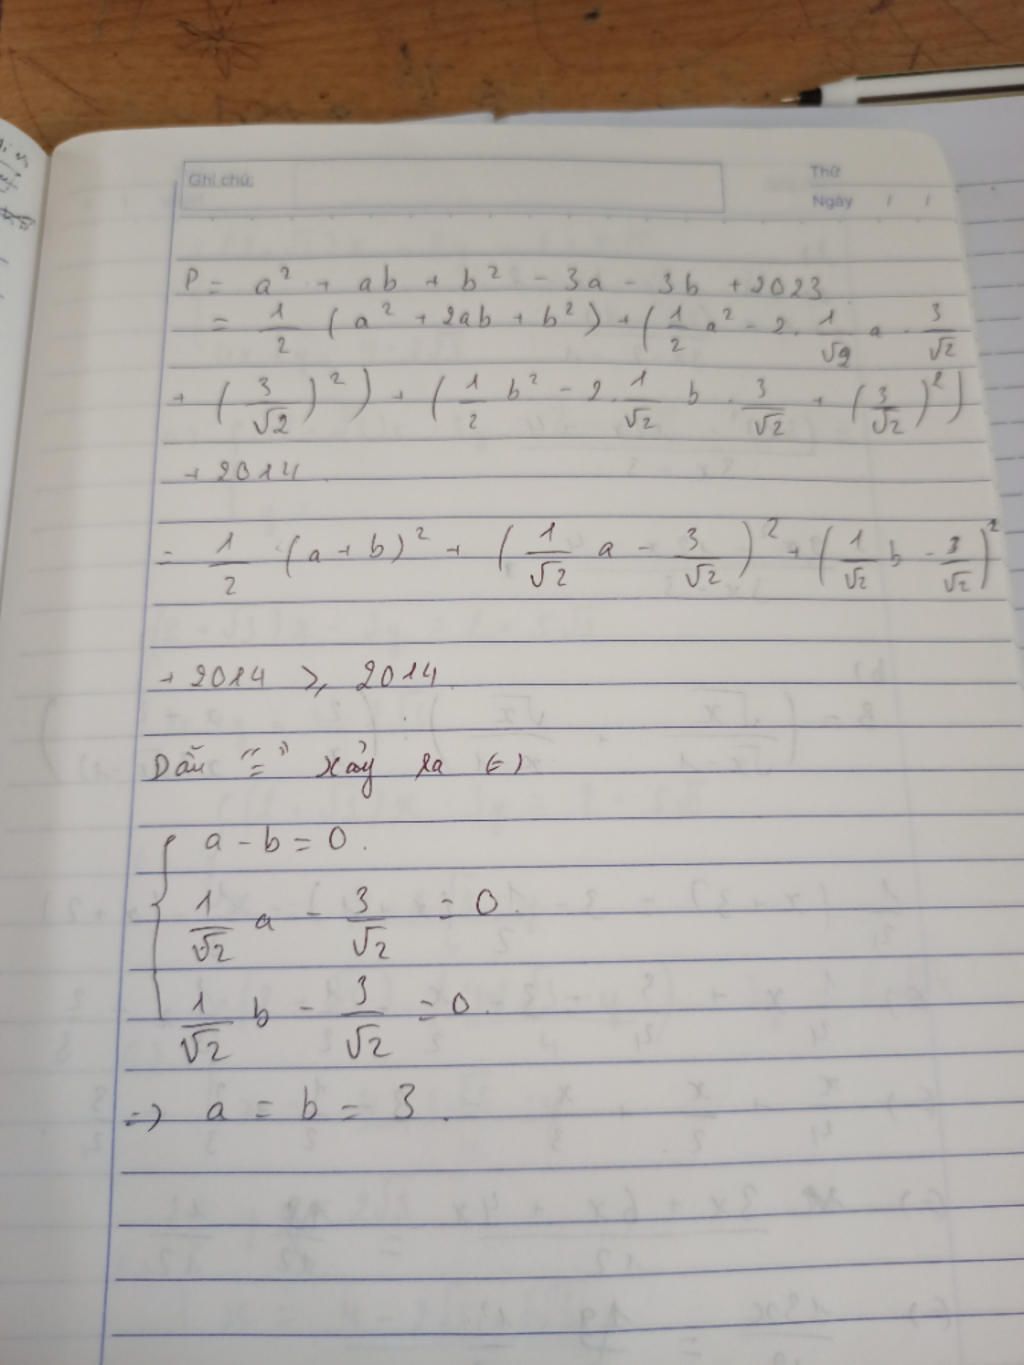 Ghi chú:
Thứ
Ngày / /
P = a² + ab + b² - 3a - 3b + 2023
= 1/2 (a² + 2ab + b²) + (1/2 a² - 2. 1/√2 a . 3/√2
+ (3/√2)²) + (1/2 b² - 2. 1/√2 b . 3/√2 + (3/√2)²)
+ 2014
= 1/2 (a + b)² + (1/√2 a - 3/√2)² + (1/√2 b - 3/√2)²
+ 2014 ⩾ 2014
Dấu "=" xảy ra (=)
{ a - b = 0.
1/√2 a - 3/√2 = 0.
1/√2 b - 3/√2 = 0.
=) a = b = 3.